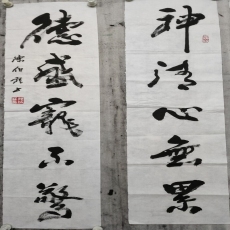 神清心無累
德盛寵不驚